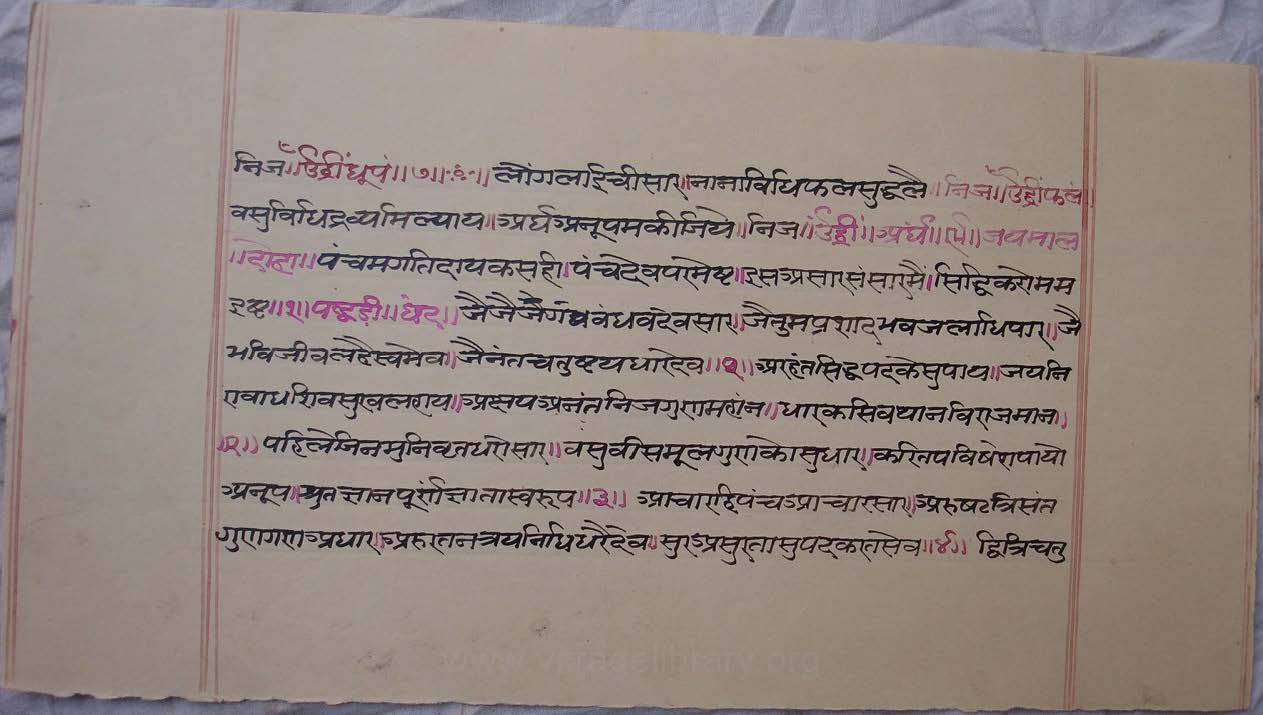 निज॥ॐह्रींधूपं॥७॥ लौंगलाईचीसार॥नानाविधिफलसुद्धलै॥निज॥ॐह्रींफलं॥
वसुविधिद्रर्व्यमिल्याय॥अर्घअनूपमकीजिये॥निज॥ॐह्रीं॥अर्घं॥ जयमाल
॥दोहा॥पंचमगतिदायकसही।पंचदेवपरमेष्ट॥इसअसारसंसारमैं॥सिद्धिकरोमम
इष्ट॥१॥पद्धड़ी॥छंद॥जैजैजै देवसार॥जैतुमप्रशादभवजलधिपार॥जै
भविजीवलहैस्वमेव॥जैनंतचतुष्टयधारदेव॥१॥अरहंतसिद्धपदकेसुपाय॥जयनि
रावाधशिवसुखलहाय॥ अनंतनिजगुणमहांन॥धारकसिवथानविराजमान॥
॥२॥पहिलैजिनमुनिवृतधरोसार॥वसुवीसमूलगुणकोसुधार॥करितपविषेशपायो
अनूप॥श्रुतज्ञानपूर्णज्ञातास्वरूप॥३॥ आचारहिपंचआचारसार॥अरुषटत्रिसंत
गुणगणअधार॥अरुरतनत्रयनिधिधरैदेव॥सुरअसुरतासुपदकरतसेव॥४॥ द्वित्रिचतु